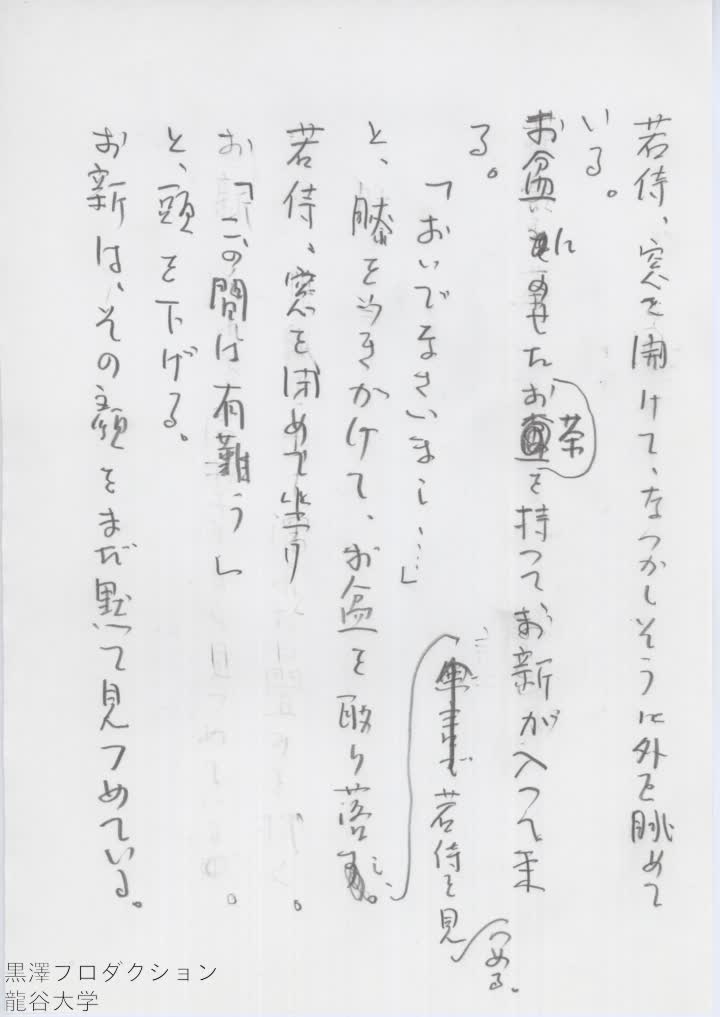 若侍、窓を開けて、なつかしそうに外を眺めて
いる。
お盆にのせたお茶を持つてお新が入つて来
る。
「おいでなさいまし……」
と、膝をつきかけて、お盆を取り落し、
若侍を見つめる。
若侍、窓を閉めて坐り
「この間は有難う」
と、頭を下げる。
お新は、その顔をまだ黙つて見つめている。
黒澤プロダクション
龍谷大学